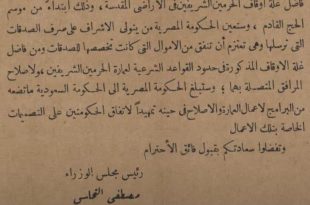 فاضل غلة أوقاف الحرمين الشريفين فى الأراضى المقدسة ، وذلك ابتداء من موسم
الحج القادم ، وستعين الحكومة المصرية من يتولى الاشراف على صرف الصدقات
التى ترسلها وهى تعتزم أن تنفق من الأموال التى كانت تخصصها للصدقات ومن فاضل
غلة الاوقاف المذكورة فى حدود القواعد الشرعية لعمارة الحرمين الشريفين ، ولاصلاح
المرافق المتصلة بهما ؛ وستبلغ الحكومة المصرية الى الحكومة السعودية ماتضعه
من البرامج لاعمال العمارة والاصلاح فى حينه تمهيداً لاتفاق الحكومتين على التصميمات
الخاصة بتلك الاعمال
وتفضلوا سعادتكم بقبول فائق الاحترام
رئيس مجلس الوزراء
مصطفى النحاس